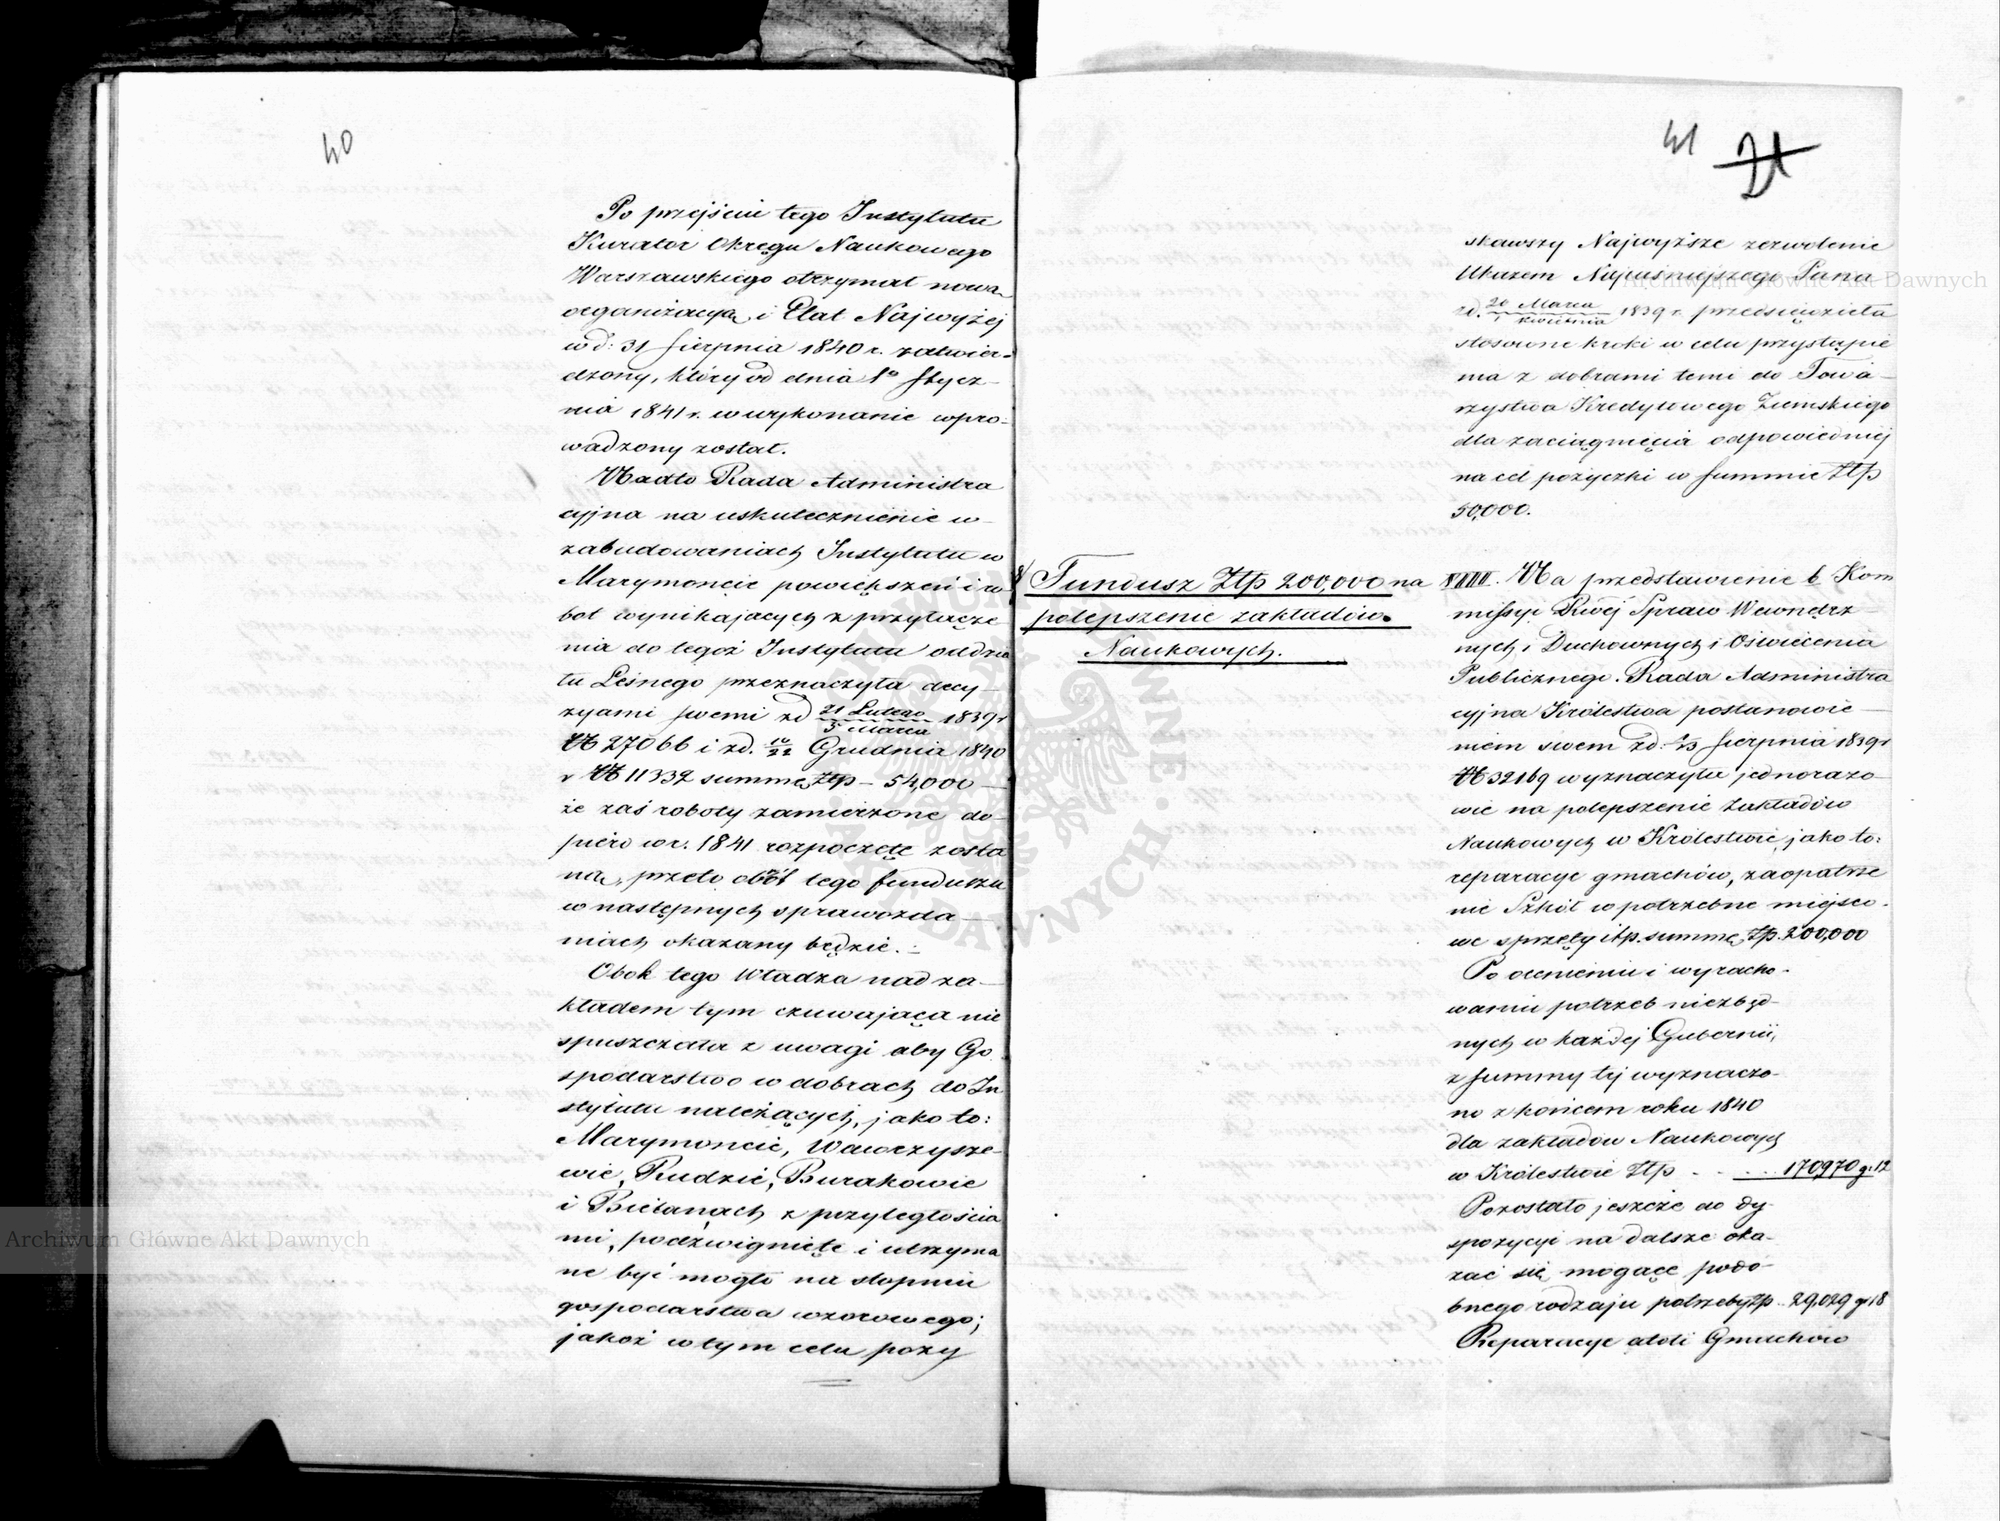 40
Po przejściu tego Instytutu
Kurator Okręgu Naukowego
Warszawskiego otrzymał nową
organizacyą i Etat Najwyżej
w d: 31 Sierpnia 1840 r. zatwier-
dzony, który od dnia 1o Stycz-
nia 1841 r. w wykonanie wpro-
wadzony został.
Nadto Rada Administra
cyjna na uskutecznienie w
zabudowaniach Instytutu w
Marymoncie powiększeń i ro
bot wynikających z przyłącze
nia do tegoż Instytutu oddzia
łu Leśnego przeznaczyła decy-
zyami swemi z d 21 Lutego / 5 Marca 1839 r
N 27066 i z d. 10/22 Grudnia 1840
r N 11332 summę Złp – 54,000 –
że zaś roboty zamierzone do-
piero w r. 1841 rozpoczęte zosta
ną, przeto obrót tego funduszu
w następnych sprawozda-
niach okazany będzie. –
Obok tego Władza nad za-
kładem tym czuwająca nie
spuszczała z uwagi aby Go
spodarstwo w dobrach do In
stytutu należących, jako to:
Marymoncie, Wawrzysze-
wie, Rudzie, Burakowie
i Bielanach z przyległościa
mi, podźwignięte i utrzyma
ne być mogło na stopniu
gospodarstwa wzorowego;
jakoż w tym celu pozy
41 21
skawszy Najwyższe zezwolenie
Ukazem Najjaśniejszego Pana
z d. 20 Marca / 1 Kwietnia 1839 r. przedsięwzięła
stosowne kroki w celu przystąpie
nia z dobrami temi do Towa-
rzystwa Kredytowego Ziemskiego
dla zaciągnięcia odpowiedniej
na cel pożyczki w summie Złp
50,000.
8/ Fundusz Złp 200,000 na
polepszenie zakładów
Naukowych.
XVIII. Na przedstawienie b. Kom
missyi Rwej Spraw Wewnętrz-
nych i Duchownych i Oświecenia
Publicznego. Rada Administra
cyjna Królestwa postanowie-
niem swem z d. Sierpnia 1839 r
N 32169 wyznaczyła jednorazo-
wie na polepszenie Zakładów
Naukowych w Królestwie, jako to:
reparacye gmachów, zaopatrze
nie Szkół w potrzebne miejsco-
we sprzęty itp. summę Złp. 200,000
Po ocenieniu i wyracho-
waniu potrzeb niezbęd-
nych w każdej Gubernii,
z summy tej wyznaczo-
no z końcem roku 1840
dla zakładów Naukowych
w Królestwie Złp - - . . . 170970 g: 12
Pozostało jeszcze do dy-
spozycyi na dalsze oka-
zać się mogące podo-
bnego rodzaju potrzeby Złp .. 29,029 gr 18
Reparacye atoli Gmachów
Archiwum Główne Akt Dawnych
Archiwum Główne Akt Dawnych